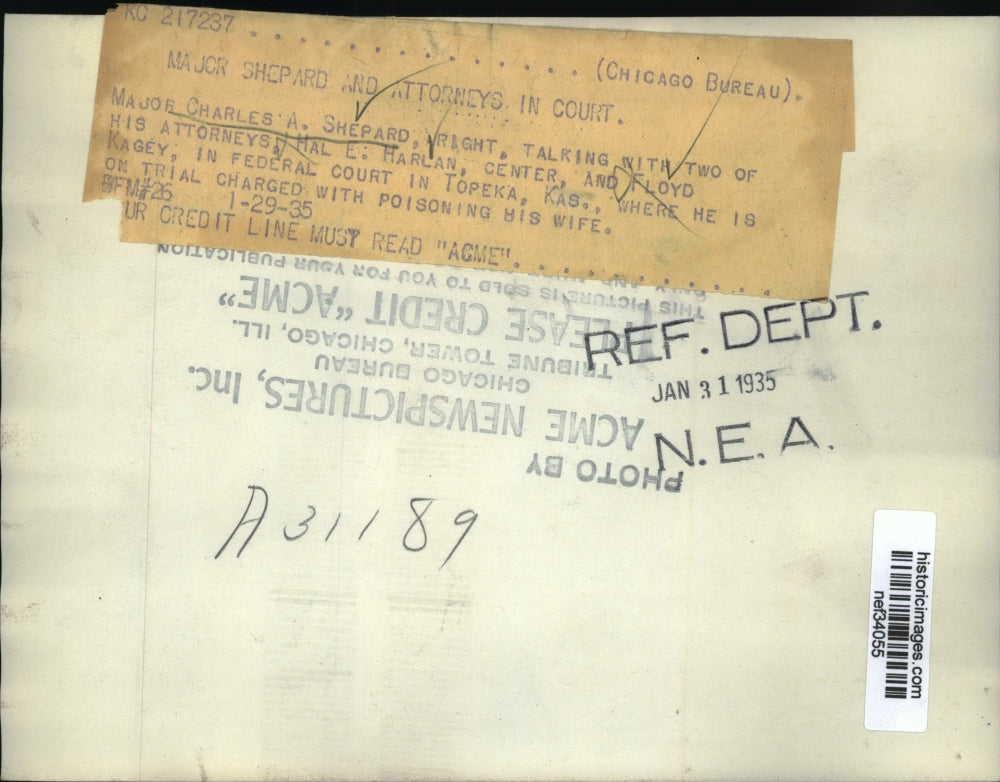 KC 217237 . . . . . . . . . . . . . (CHICAGO BUREAU).
MAJOR SHEPARD AND ATTORNEYS IN COURT.
MAJOR CHARLES A. SHEPARD, RIGHT, TALKING WITH TWO OF
HIS ATTORNEYS, HAL E. HARLAN, CENTER, AND FLOYD
KAGEY, IN FEDERAL COURT IN TOPEKA, KAS., WHERE HE IS
ON TRIAL CHARGED WITH POISONING HIS WIFE.
#26 1-29-35
UR CREDIT LINE MUST READ "ACME" . . . . . . . . .
PHOTO BY
ACME NEWSPICTURES, Inc.
CHICAGO BUREAU
TRIBUNE TOWER, CHICAGO, ILL.
PLEASE CREDIT "ACME"
THIS PICTURE IS SOLD TO YOU FOR YOUR PUBLICATION
ONLY AND MUST
REF. DEPT.
JAN 31 1935
N.E.A.
A31189
historicimages.com
nef34055